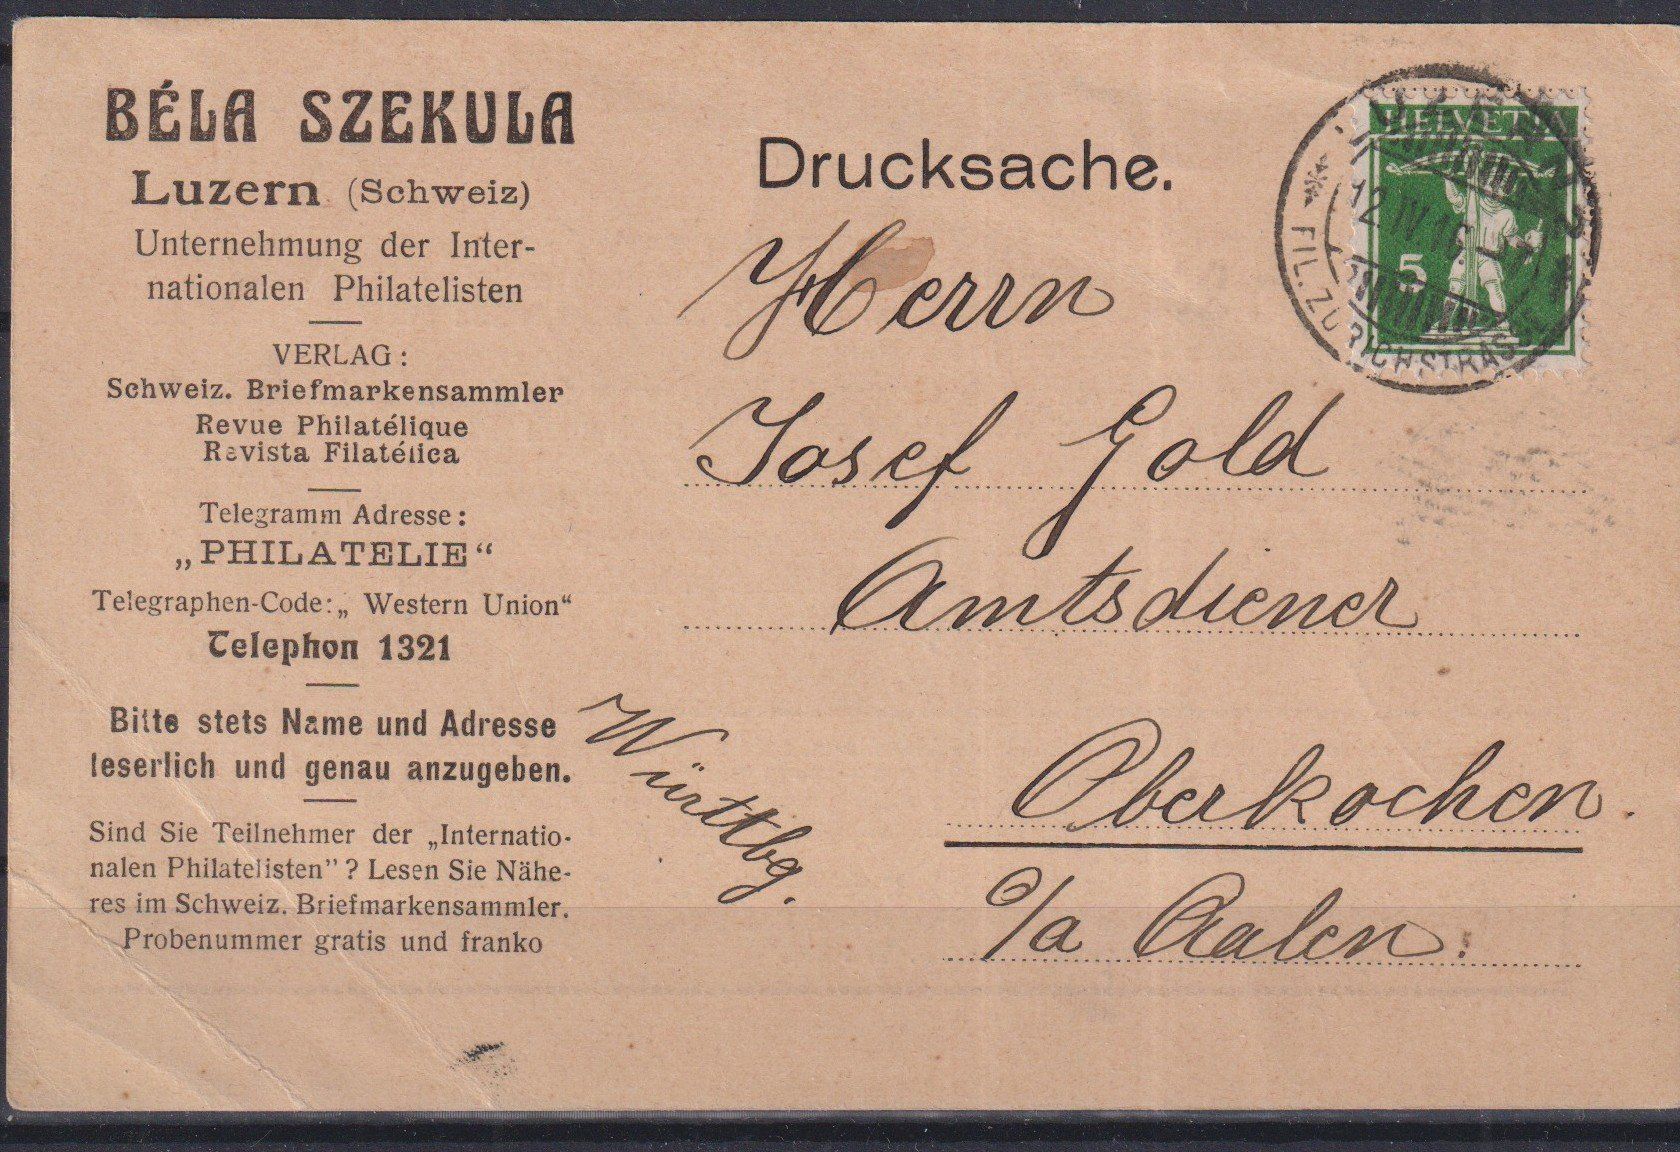 BÉLA SZEKULA
Luzern (Schweiz)
Unternehmung der Inter-
nationalen Philatelisten
VERLAG:
Schweiz. Briefmarkensammler
Revue Philatélique
Revista Filatélica
Telegramm Adresse:
„PHILATELIE“
Telegraphen-Code:„ Western Union“
Telephon 1321
Bitte stets Name und Adresse
leserlich und genau anzugeben.
Sind Sie Teilnehmer der „Internatio-
nalen Philatelisten”? Lesen Sie Nähe-
res im Schweiz. Briefmarkensammler.
Probenummer gratis und franko
Drucksache.
Herrn
Josef Gold
Amtsdiener
Oberkochen.
o/a Aalen.
Württbg.
HELVETIA
5
FIL. ZÜRICHSTRASSE